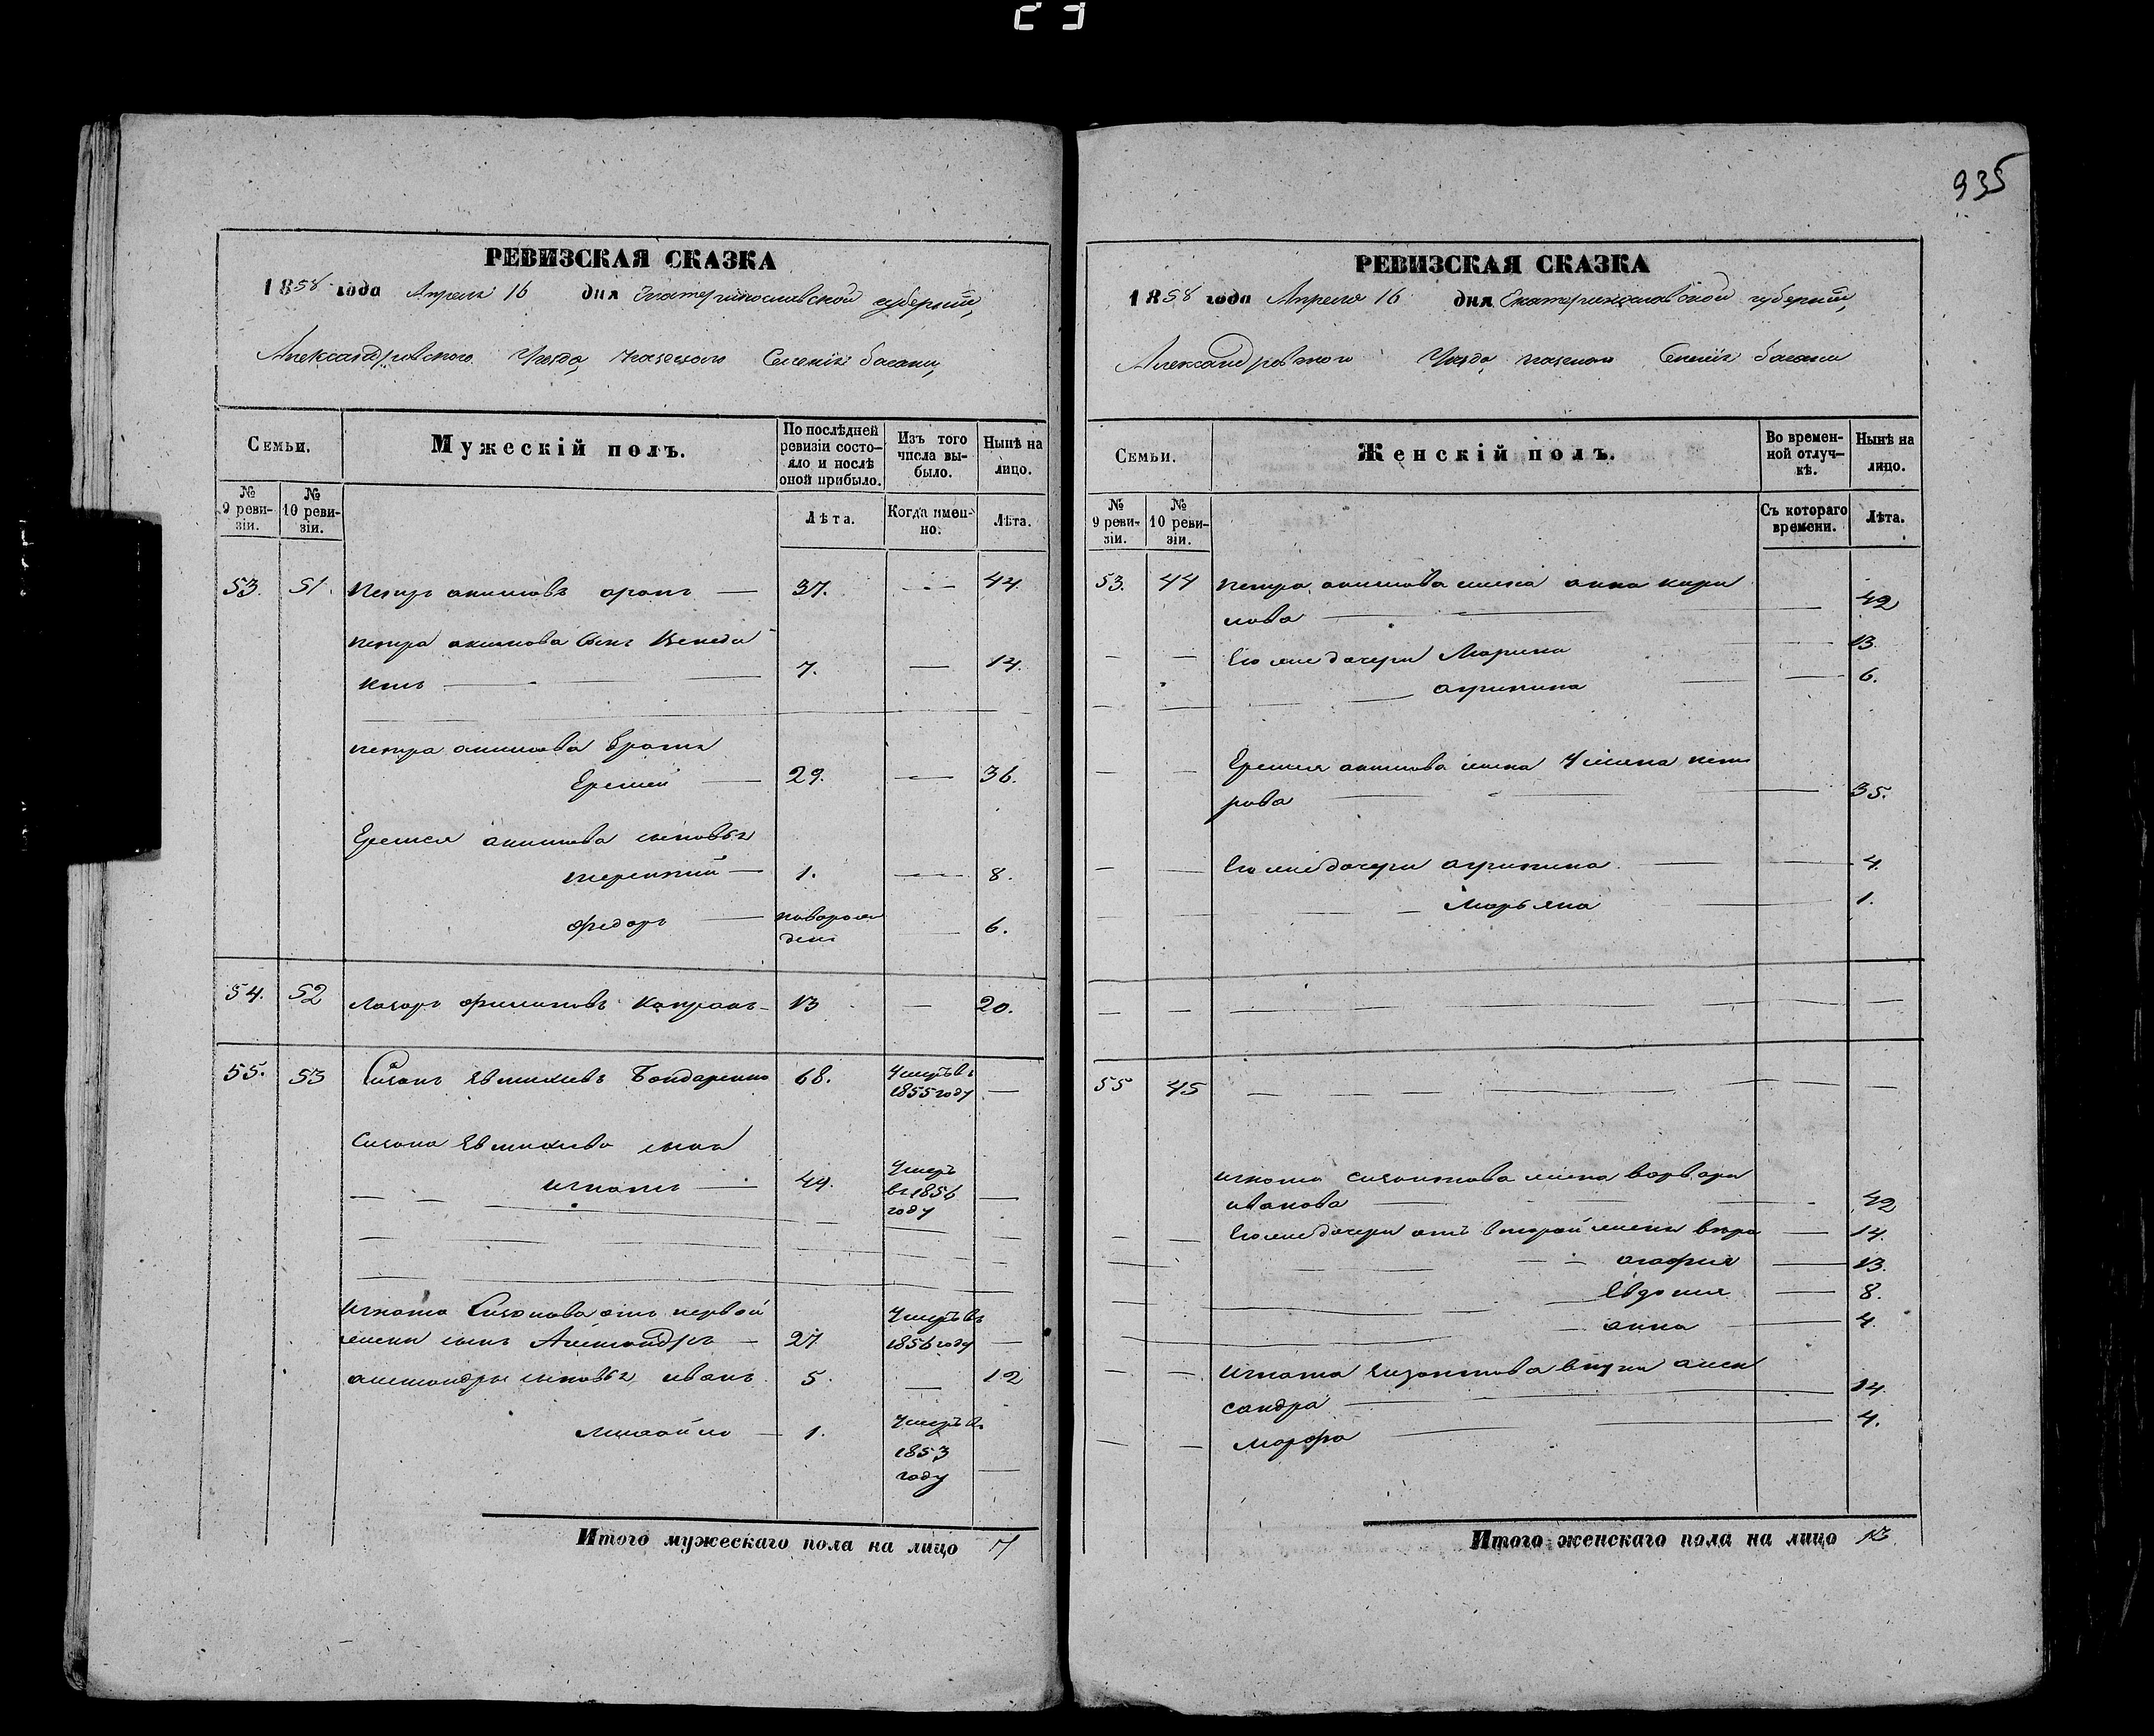 935
РЕВИЗСКАЯ СКАЗКА
1858 года Апреля 16 дня Екатеринославской губернии,
Александровского Уезда, казенного Селения басани,
Семьи.
Мужескій полъ.
По послѣдней ревизіи состояло и послѣ оной прибыло.
Изъ того числа выбыло.
Нынѣ на лицо.
№ 9 ревизіи.
№ 10 ревизіи.
Лѣта.
Когда именно.
Лѣта.
53. 51. Петръ акимовъ 37. — 44.
Петра акимова сынъ Венеди
ктъ — 7. — 14.
петра акимова братъ
Еремей — 29. — 36.
Еремея акимова сыновья
терентий — 1. — 8.
федоръ — новорож
денъ — 6.
54. 52 Лазарь филиповъ 13 — 20.
55. 53 Сизонъ Бондаренко 68. Умеръ въ
1855 году —
Сизона сынъ
игнатъ — 44. Умеръ
въ 1856
году —
игната Сизонова отъ первой
жены сынъ Александръ — 27 Умеръ въ
1856 году —
александры сыновья иванъ 5. — 12
михайло — 1. Умеръ въ
1853
году —
Итого мужескаго пола на лицо 7
РЕВИЗСКАЯ СКАЗКА
1858 года Апреля 16 дня Екатеринославской губернии,
Александровского Уезда казенного Селения басани
Семьи.
Женскій полъ.
Во временной отлучкѣ.
Нынѣ на лицо.
№ 9 ревизіи.
№ 10 ревизіи.
Съ котораго времени.
Лѣта.
53. 44 петра акимова жена анна кири
лова — 42
Его же дочери Марина — 13.
агрипина — 6.
Еремея акимова жена Улияна пет
рова — 35.
Его же дочери агрипина — 4.
Марьяна — 1.
55 45
игната жена варвара
иванова — 42
Его же дочери отъ второй жены вера — 14.
агафия — 13.
Евдокия — 8.
анна — 4.
игната внуки алек
сандра — 14.
марфа — 4.
Итого женскаго пола на лицо 13.